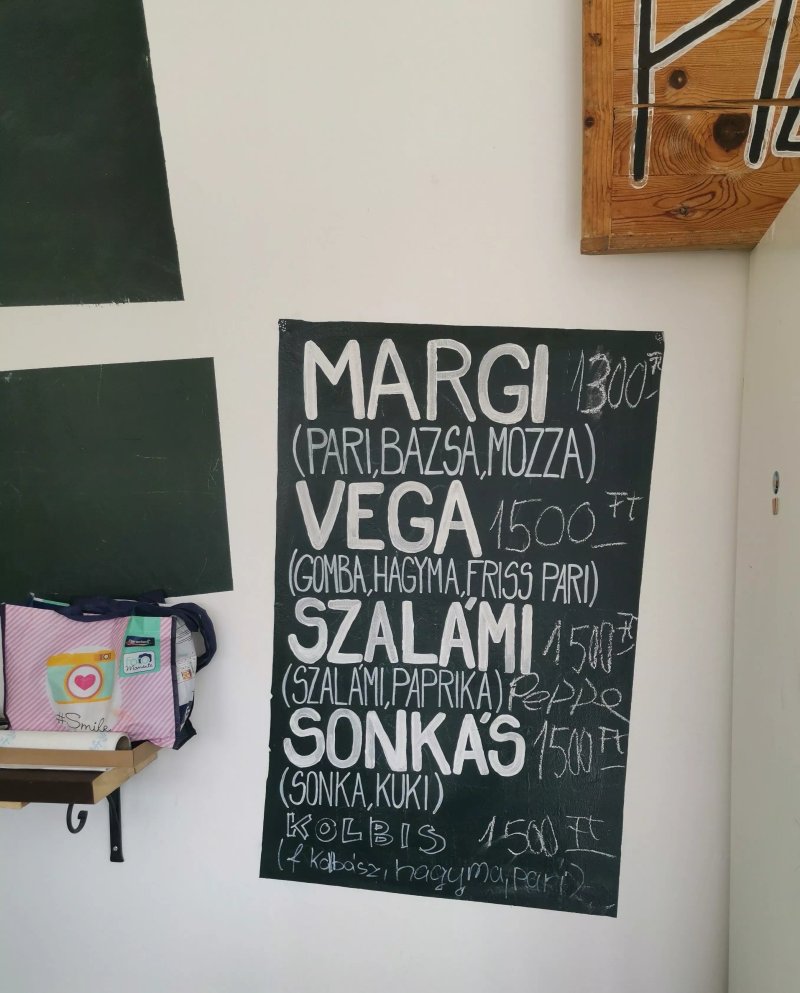 MARGI 1300 Ft
(PARI, BAZSA, MOZZA)
VEGA 1500 FT
(GOMBA, HAGYMA, FRISS PARI)
SZALÁMI 1500 Ft
(SZALÁMI, PAPRIKA) PePPe
SONKÁS 1500 Ft
(SONKA, KUKI)
KOLBIS 1500 Ft
(f kolbász, hagyma, pari)
#Smile